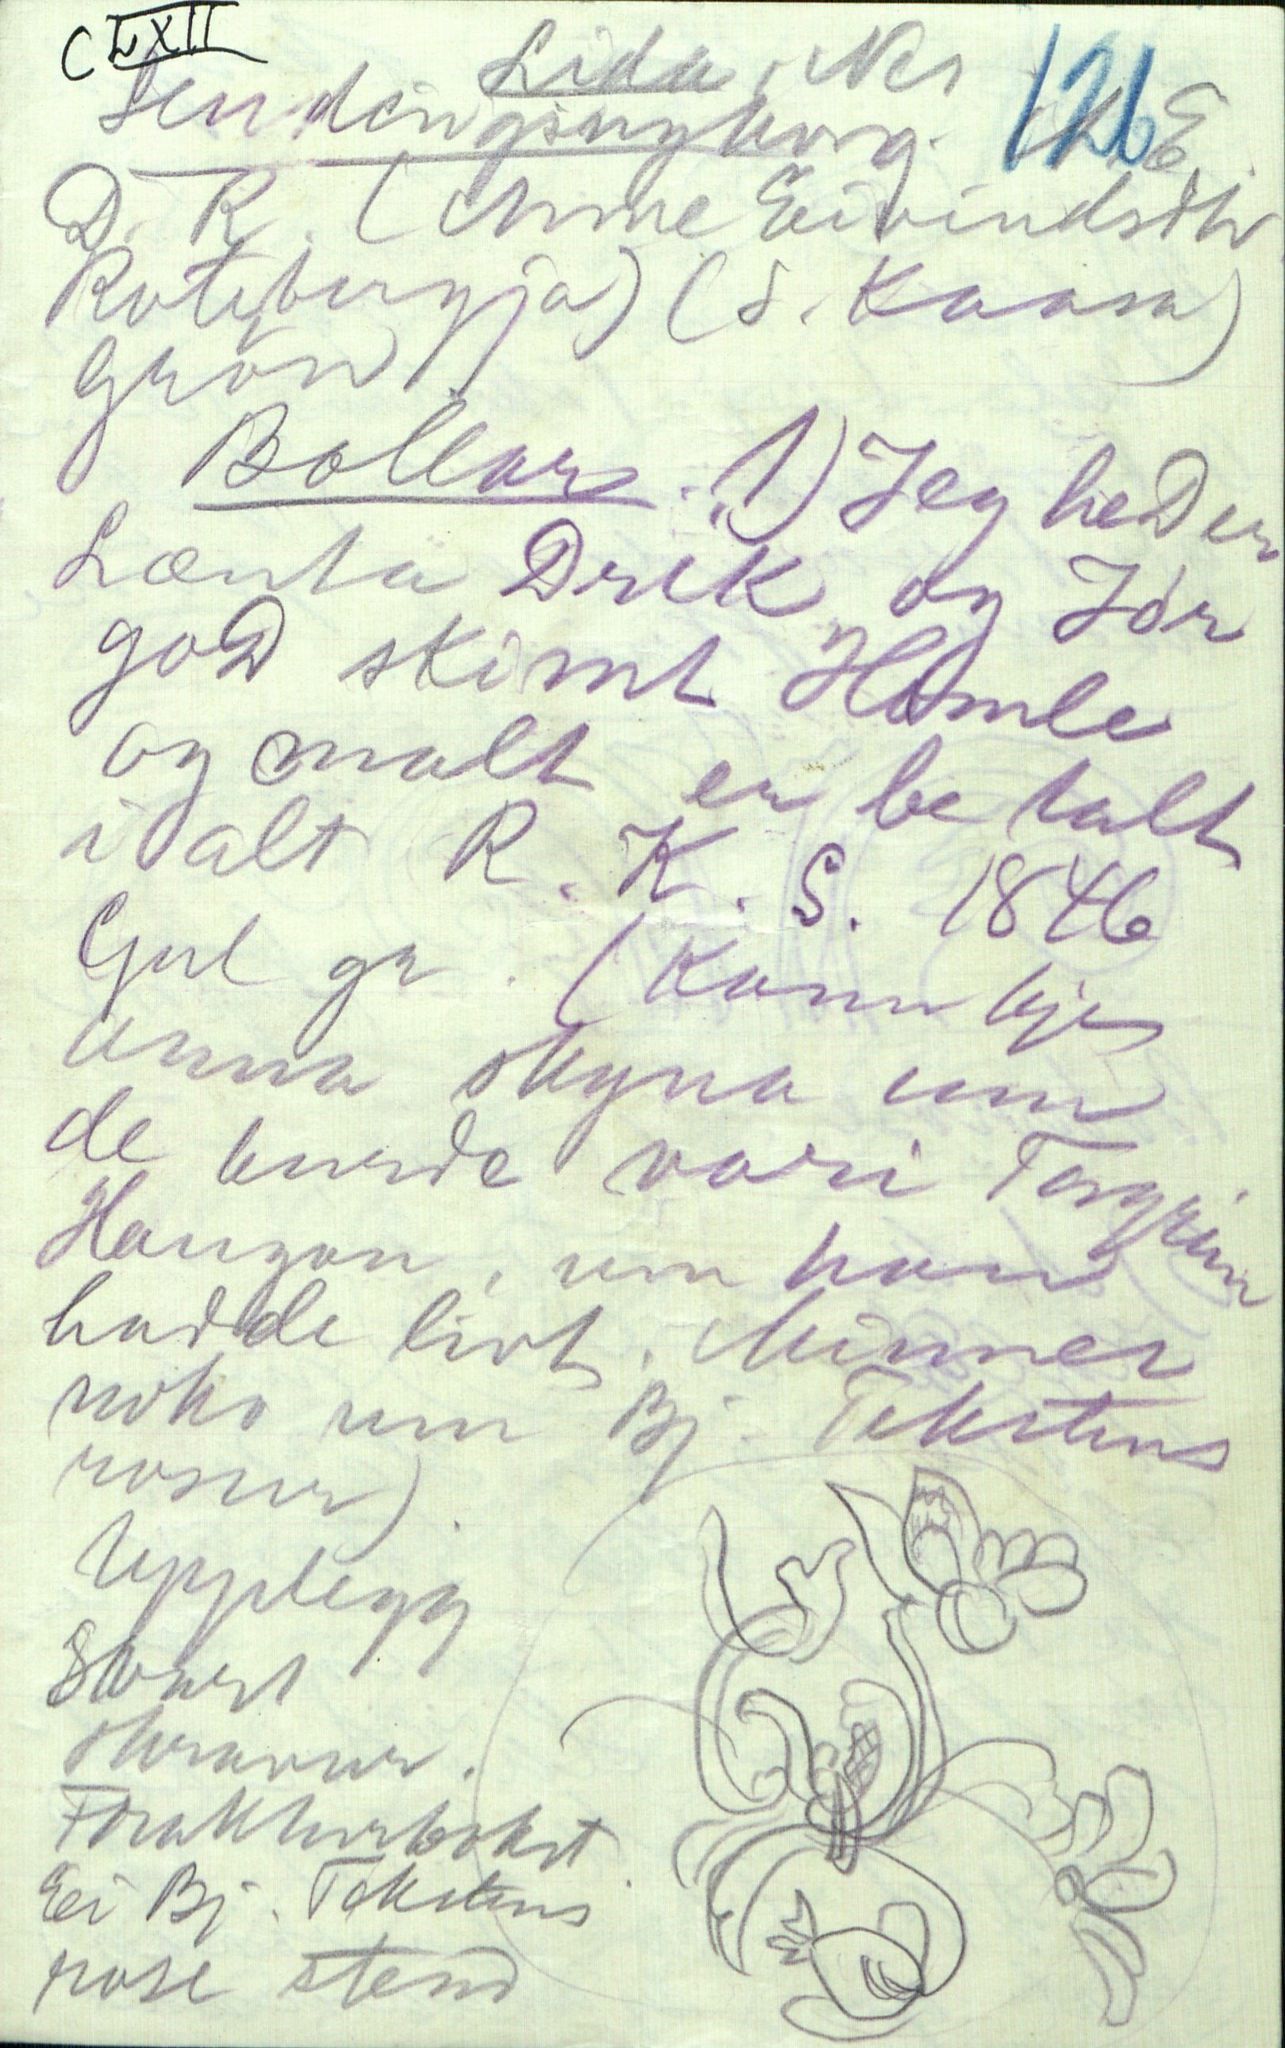 CLXII
Lida, Nes 126
Sendingsugborg. A. E.
D. R. (Anne Eivindsdtr
Rotebergja) (S. Kaasa)
Grön
Bollar. 1) Jeg heDer
Lænta Drik og Jör
goD skimt Homle
og malt er betalt
i alt R. K. S. 1846
Gul gr. (Kann kje
anna skyna um
de burde vori Torgrim
Haugan, um han
hadde livt. Minner
noko um Bj. Tekstens
rosur)
Upplegg
Svart
skravur.
Frakturbokst
Ei Bj. Tekstens
rose stend